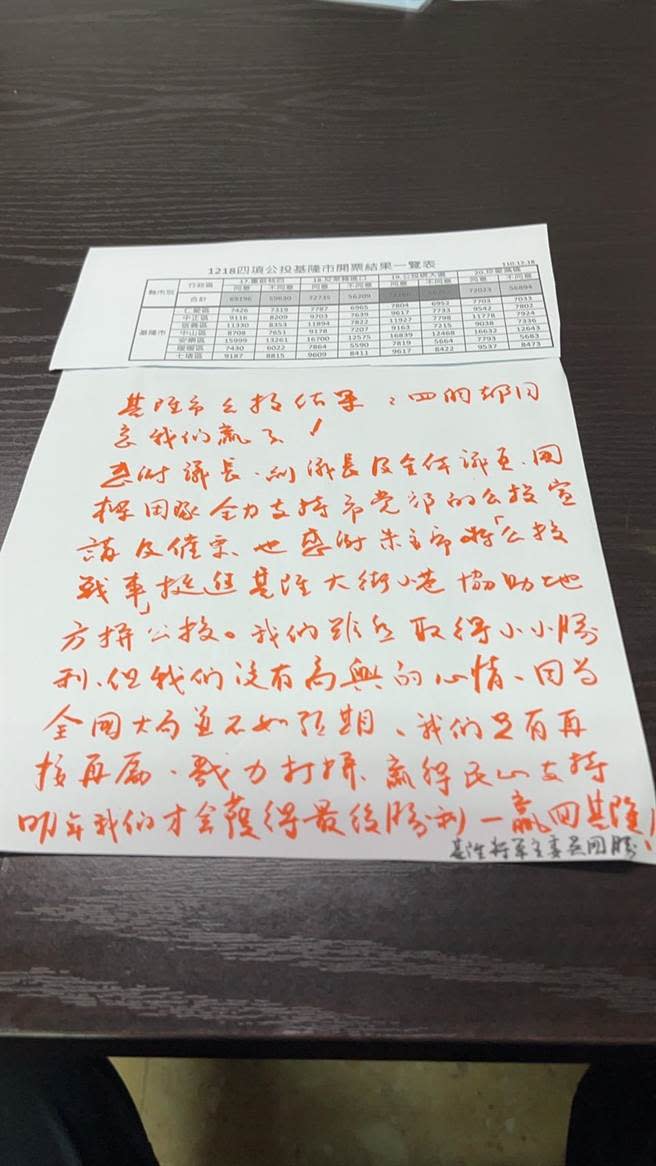 1218四項公投基隆市開票結果一覽表
110.12.18
縣市別 行政區 17.重啟核四 18.反萊豬進口 19.公投綁大選 20.珍愛藻礁
同意 不同意 同意 不同意 同意 不同意 同意 不同意
合計 69196 59630 72735 56209 72023 56894
基隆市
仁愛區 7426 7319 7787 6965 7804 6952 7703 7033
中正區 9116 8209 9703 7639 9617 7733 9542 7802
信義區 11330 8353 11894 7822 11927 7798 11778 7924
中山區 8708 7651 9178 7207 9163 7215 9038 7336
安樂區 15999 13261 16700 12575 16839 12468 16632 12643
暖暖區 7430 6022 7864 5590 7819 5664 7793 5683
七堵區 9187 8815 9609 8411 9617 8422 9537 8473
基隆市公投結果:四個都同
意我们贏了!
感谢議長、副議長及全体議員、同
桿团隊全力支持市党部的公投宣
講及催票、也感谢朱主席將「公投
戦車」挺進基隆大街小巷協助地
方拼公投。我们雖然取得小小勝
利、但我们没有高興的心情、因為
全國大局並不如預期、我们只有再
接再厲、戮力打拼、贏得民心支持
明年我们才会獲得最後勝利一贏回基隆!
基隆將軍主委吴国勝